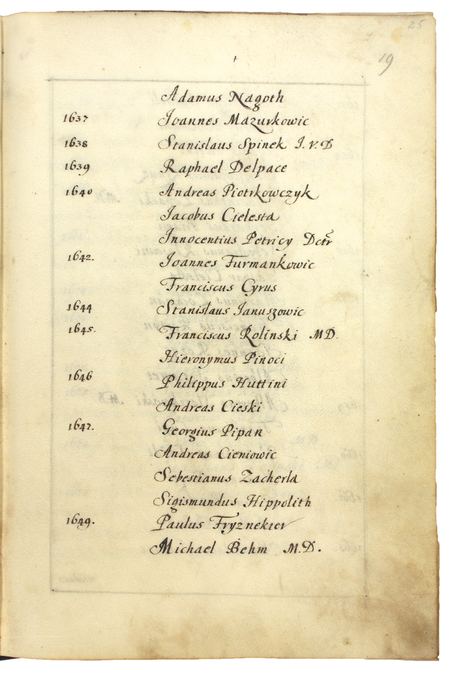 25
19
Adamus Nagoth
1637 Joannes Mazurkowic
1638 Stanislaus Spinek I.V.D
1639 Raphael Delpace
1640 Andreas Piotrkowczyk
Jacobus Cielesta
Innocentius Petricy Dctr
1642. Joannes Furmankowic
Franciscus Cyrus
1644 Stanislaus Januszowic
1645. Franciscus Rolinski MD.
Hieronymus Pinoci
1646 Philippus Huttini
Andreas Cieski
1647. Georgius Pipan
Andreas Cieniowic
Sebestianus Zacherla
Sigismundus Hippolith
1649. Paulus Fryznekier
Michael Behm M.D.